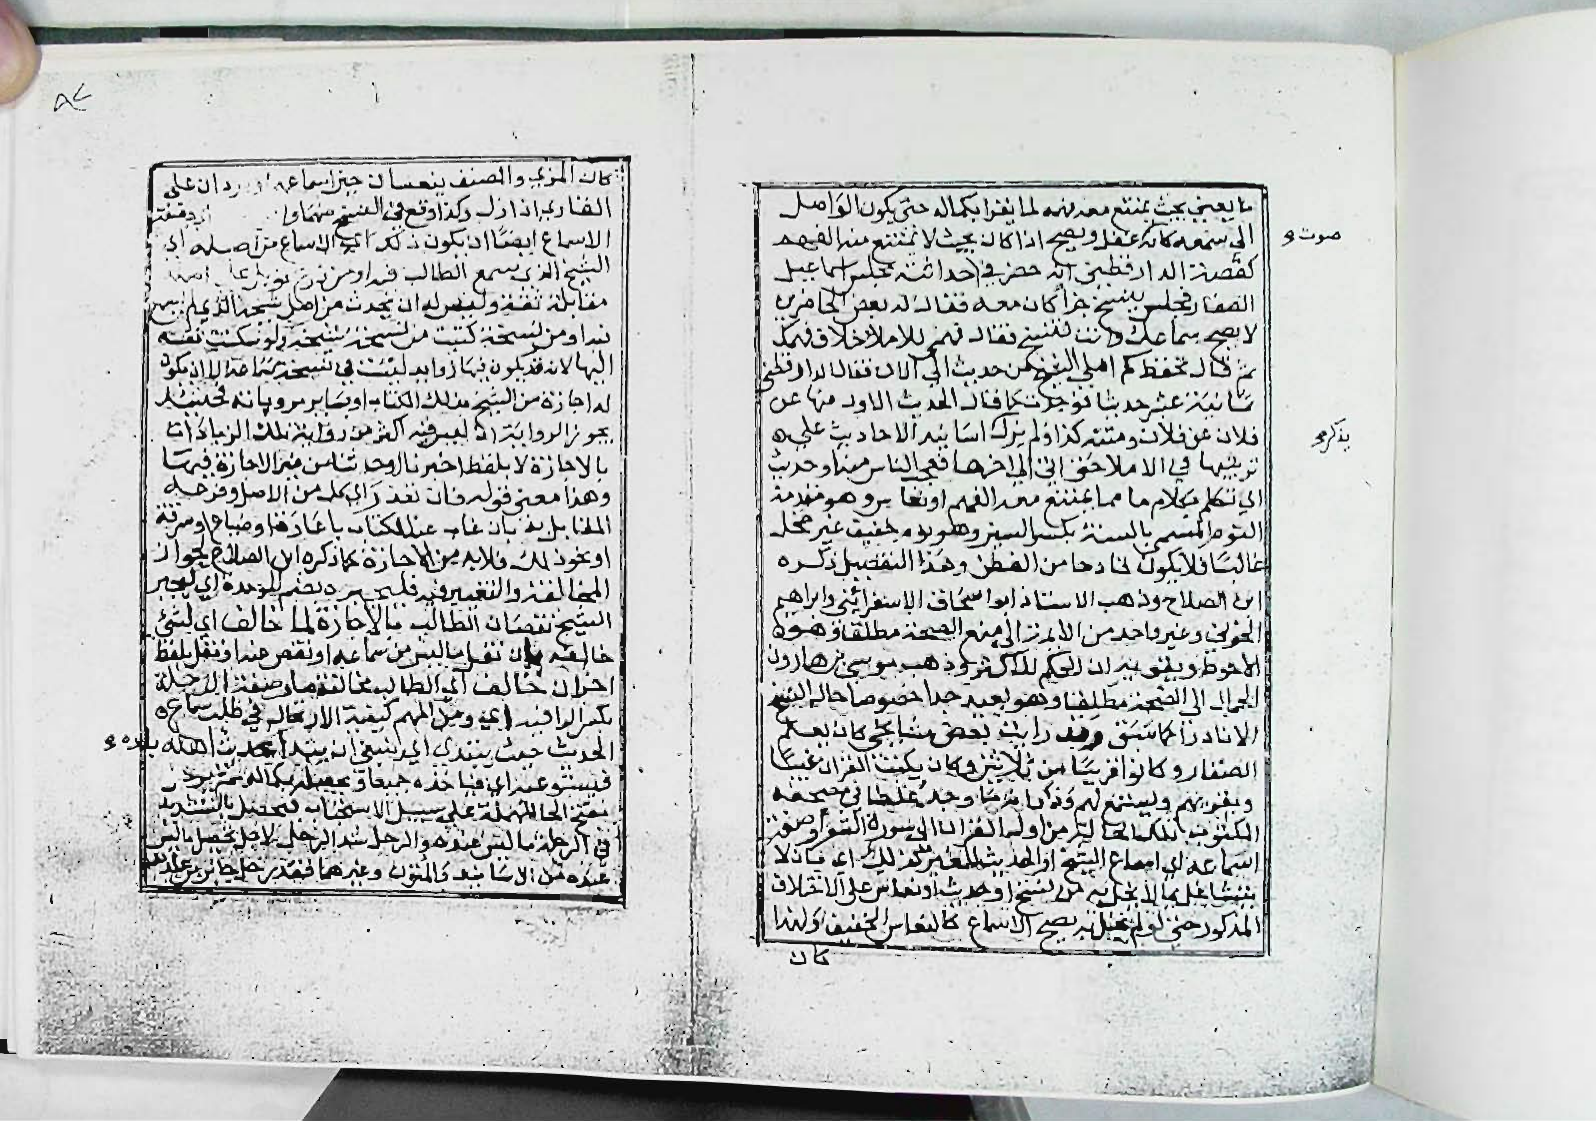 ما يعني بحيث يمتنع معه فهمه لما يقرا بكماله حتى يكون الواصل
الى سمعه كانه غفل ويصح اذا كان بحيث لا يمتنع منه الفهم
صوت
كقصة الدارقطني انه حضر في حداثته مجلس اسماعيل
الصفار فجلس ينسخ جزأ كان معه فقال له بعض الحاضرين
لا يصح سماعك وانت تنسخ فقال فهمي للاملا خلاف فهمك
ثم قال تحفظ كم املى الشيخ من حديث الى الان فقال الدارقطني
ثمانية عشر حديثا فوجدت كما قال الحديث الاول منها عن
فلان عن فلان ومتنه كذا ولم يزل اسانيد الاحاديث على
يذكر
ترتيبها في الاملا حتى اتى الى اخرها فعجب الناس منه او حديث
اي تكلم بكلام ما مما يمتنع معه الفهم او نعاس وهو مقدمة
النوم المسمى بالسنة بكسر السين وهو نوم خفيف غير مخل
غالبا فلا يكون قادحا من الفطن وهذا التفصيل ذكره
ابن الصلاح وذهب الاستاذ ابو اسحاق الاسفرائني وابراهيم
الحربي وغير واحد من الايمة الى منع الصحة مطلقا وهو
الاحوط وذهب موسى بن هارون
الحمال الى الصحة مطلقا وهو بعيد جدا خصوصا حالة النسخ
الا نادرا كما سبق وقد رايت بعض مشايخي كان يعلم
الصغار وكانوا قريبا من ثلاثين وكان يكتب القران غيبا
المكتوب من اول القران الى سورة وصفة
اسماعه اي اسماع الشيخ او الحديث للغير كذلك اي بان لا
يتشاغل بما لا يخل به من نسخ او حديث او نعاس على الاختلاف
المذكور حتى لو لم يخل به يصح الاسماع كالنعاس الخفيف ولذا
كان
كان المزي والمصنف ينعسان حين اسماعهما ويردان على
القاري اذا زل وكذا وقع في الشيخ
الاسماع ايضا ان يكون ذلك اي الاسماع من اصله اي
الشيخ الذي سمع الطالب فيه او من فرع قوبل على اصله
مقابلة ثقة وليس له ان يحدث من اصل شيخه الذي لم يسمع
فيه او من نسخة كتبت من نسخة شيخه ولو سكنت نفسه
اليها لانه قد يكون فيها زوايد ليست في نسخة سماعه الا ان يكون
له اجازة من الشيخ بذلك الكتاب او بساير مروياته فحينئذ
يجوز الرواية اذ ليس فيه اكثر من رواية تلك الزيادات
بالاجازة لا بلفظ اخبرنا او حدثنا من غير الاجازة فيها
وهذا معنى قوله فان تعذر اي كل من الاصل وفرعه
المقابل به بان غاب عنه الكتاب باعارة او ضياع او سرقة
او نحو ذلك فلابد من الاجازة كما ذكره ابن الصلاح لجواز
المخالفة والتغيير فيه فليجبره بضم الموحدة اي ليجبر
الشيخ نقصان الطالب بالاجازة لما خالف اي لشي
خالفه بان نقل ما ليس من سماعه او نقص عنه او نقل بلفظ
اخر ان خالف اي الطالب مخالفة ما وصفة الرحلة
بكسر الرا فيه اي ومن المهم كيفية الارتحال في طلب سماع
الحديث حيث يبتدي اي ينبغي ان يبتدا بحديث اهله
بلده
فيستوعبه اي فياخذه جميعا ويحصله بكماله ثم يرحل
بفتح الحا المهملة على سبيل الاستحباب فيحصل بالتشديد
في الرحلة ما ليس عنده
عنده من الاسانيد والمتون وغيرهما فقد رحل جابر بن عبدالله